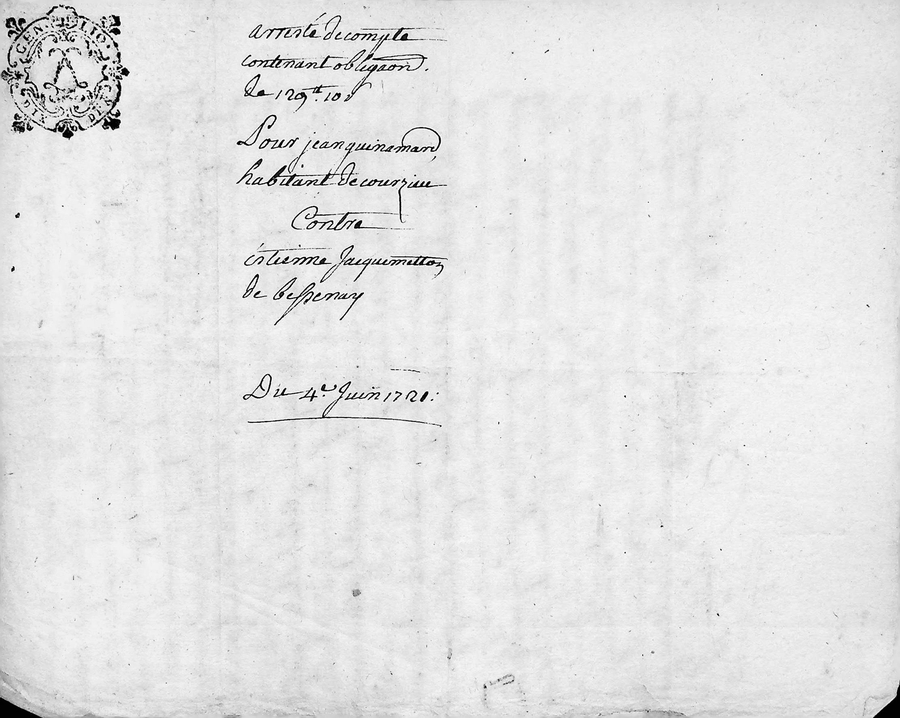 GEN. LIO.
SIX DEN
arresté decompte
contenant obligaon.
de 129tt. 10s
Pour jean guinamard
habitant decourzieu
Contre
éstienne Jacquemetton
de bessenay
Du 4e. Juin 1721.